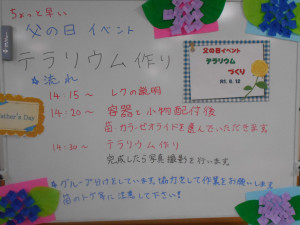 ちょっと早い
父の日 イベント
テラリウム作り
流れ
父の日イベント
テラリウム
づくり
14:15～ レクの説明
14:20～ 容器と小物配付後
苗・カラーゼオライトを選んでいただきます
14:30～ テラリウム作り
完成したら写真撮影を行います
Father's Day
グループ分けをしています。協力をして作業をお願いします
苗のトゲ等に注意して下さい!